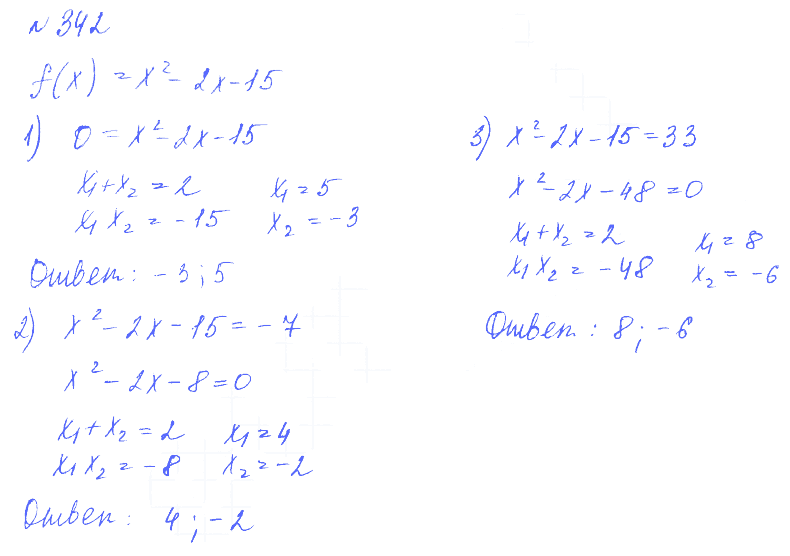 № 342
f(x) = x² - 2x - 15
1) 0 = x² - 2x - 15
x₁ + x₂ = 2 x₁ = 5
x₁ x₂ = -15 x₂ = -3
Ответ: -3; 5
2) x² - 2x - 15 = -7
x² - 2x - 8 = 0
x₁ + x₂ = 2 x₁ = 4
x₁ x₂ = -8 x₂ = -2
Ответ: 4; -2
3) x² - 2x - 15 = 33
x² - 2x - 48 = 0
x₁ + x₂ = 2 x₁ = 8
x₁ x₂ = -48 x₂ = -6
Ответ: 8; -6